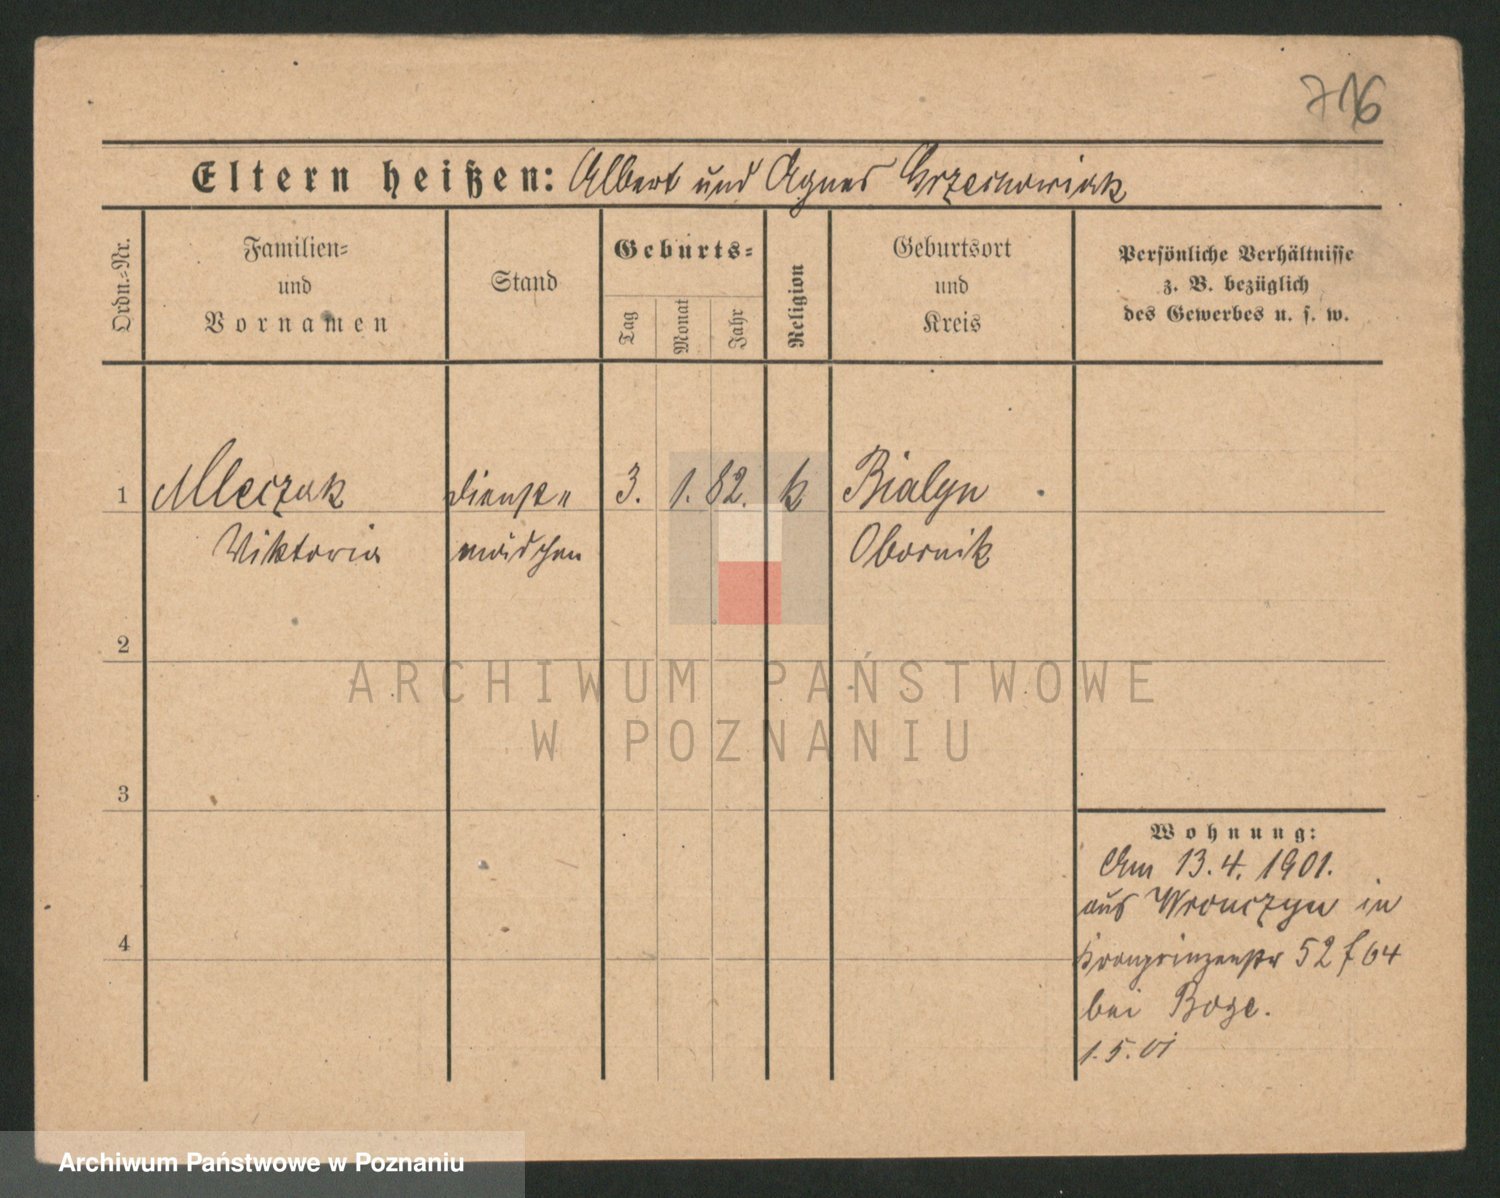 716
Eltern heißen: Albert und Agnes Grzeskowiak
Ordn.-Nr.
Familien-
und
Vornamen
Stand
Geburts-
Tag
Monat
Jahr
Religion
Geburtsort
und
Kreis
Persönliche Verhältnisse
z. B. bezüglich
des Gewerbes u. s. w.
1 Mleczak Dienst- 3. 1. 82. k. Bialyn
Viktoria mädchen Obornik
2
ARCHIWUM PAŃSTWOWE
W POZNANIU
3
Wohnung:
Am 13.4.1901.
aus Wronczyn in
Kronprinzenstr 52 f 64
4
bei
1.5.01
Archiwum Państwowe w Poznaniu